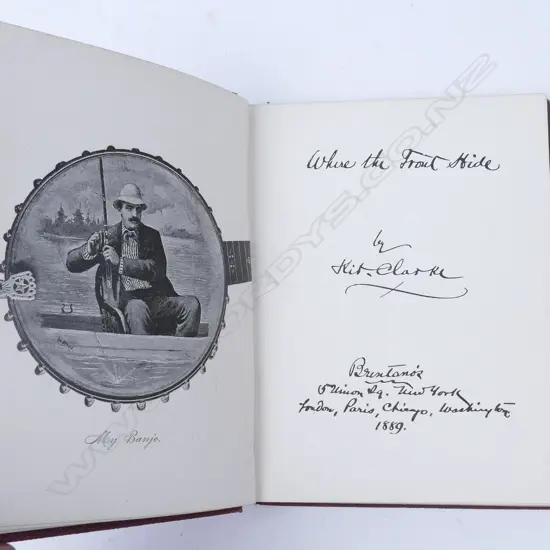 My Banjo.
Where the Trout Hide
by
Kit Clarke
Brentano's
5 Union Sq. New York
London, Paris, Chicago, Washington
1889.